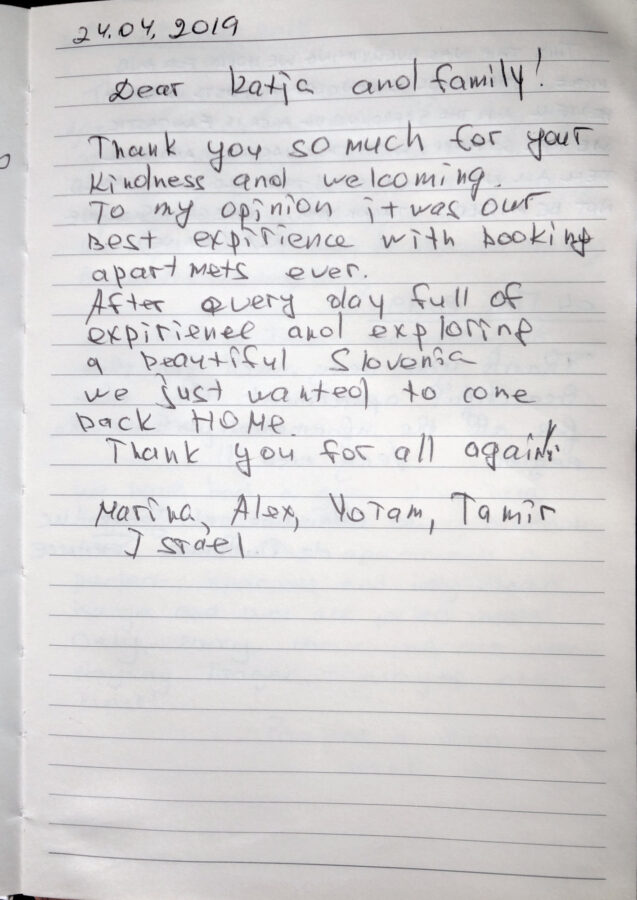 24.04.2019
Dear Katja and family!
Thank you so much for your
kindness and welcoming.
To my opinion it was our
best expirience with booking
apartmets ever.
After every day full of
expirience and exploring
a beautiful Slovenia
we just wanted to come
back HOME.
Thank you for all again!
Marina, Alex, Yotam, Tamir
Israel